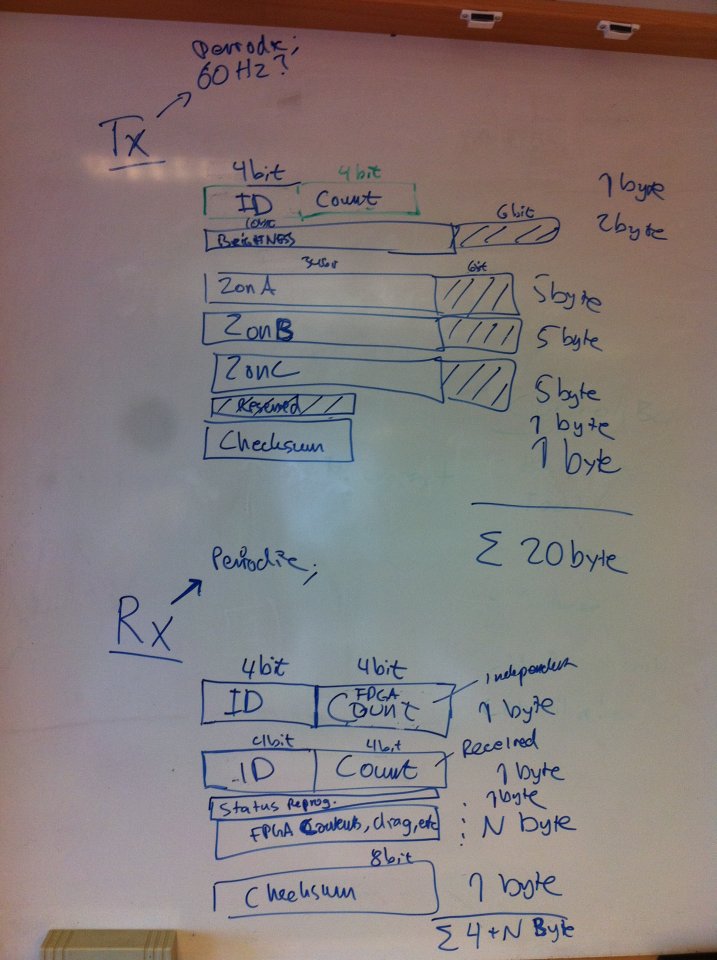 Periodic;
60Hz?
Tx
4bit 4bit
ID Count 1 byte
6bit
10bit
BRIGHTNESS 2byte
6bit
ZonA 5byte
ZonB 5byte
ZonC 5byte
Reserved 1 byte
Checksum 1 byte
Σ 20byte
Periodic;
Rx
4bit 4bit
Independent
ID FPGA Count 1 byte
4bit 4bit
Received
ID Count 1 byte
Status Reprog. 1byte
FPGA Contents, diag, etc N byte
8bit
Checksum 1 byte
Σ 4+N Byte